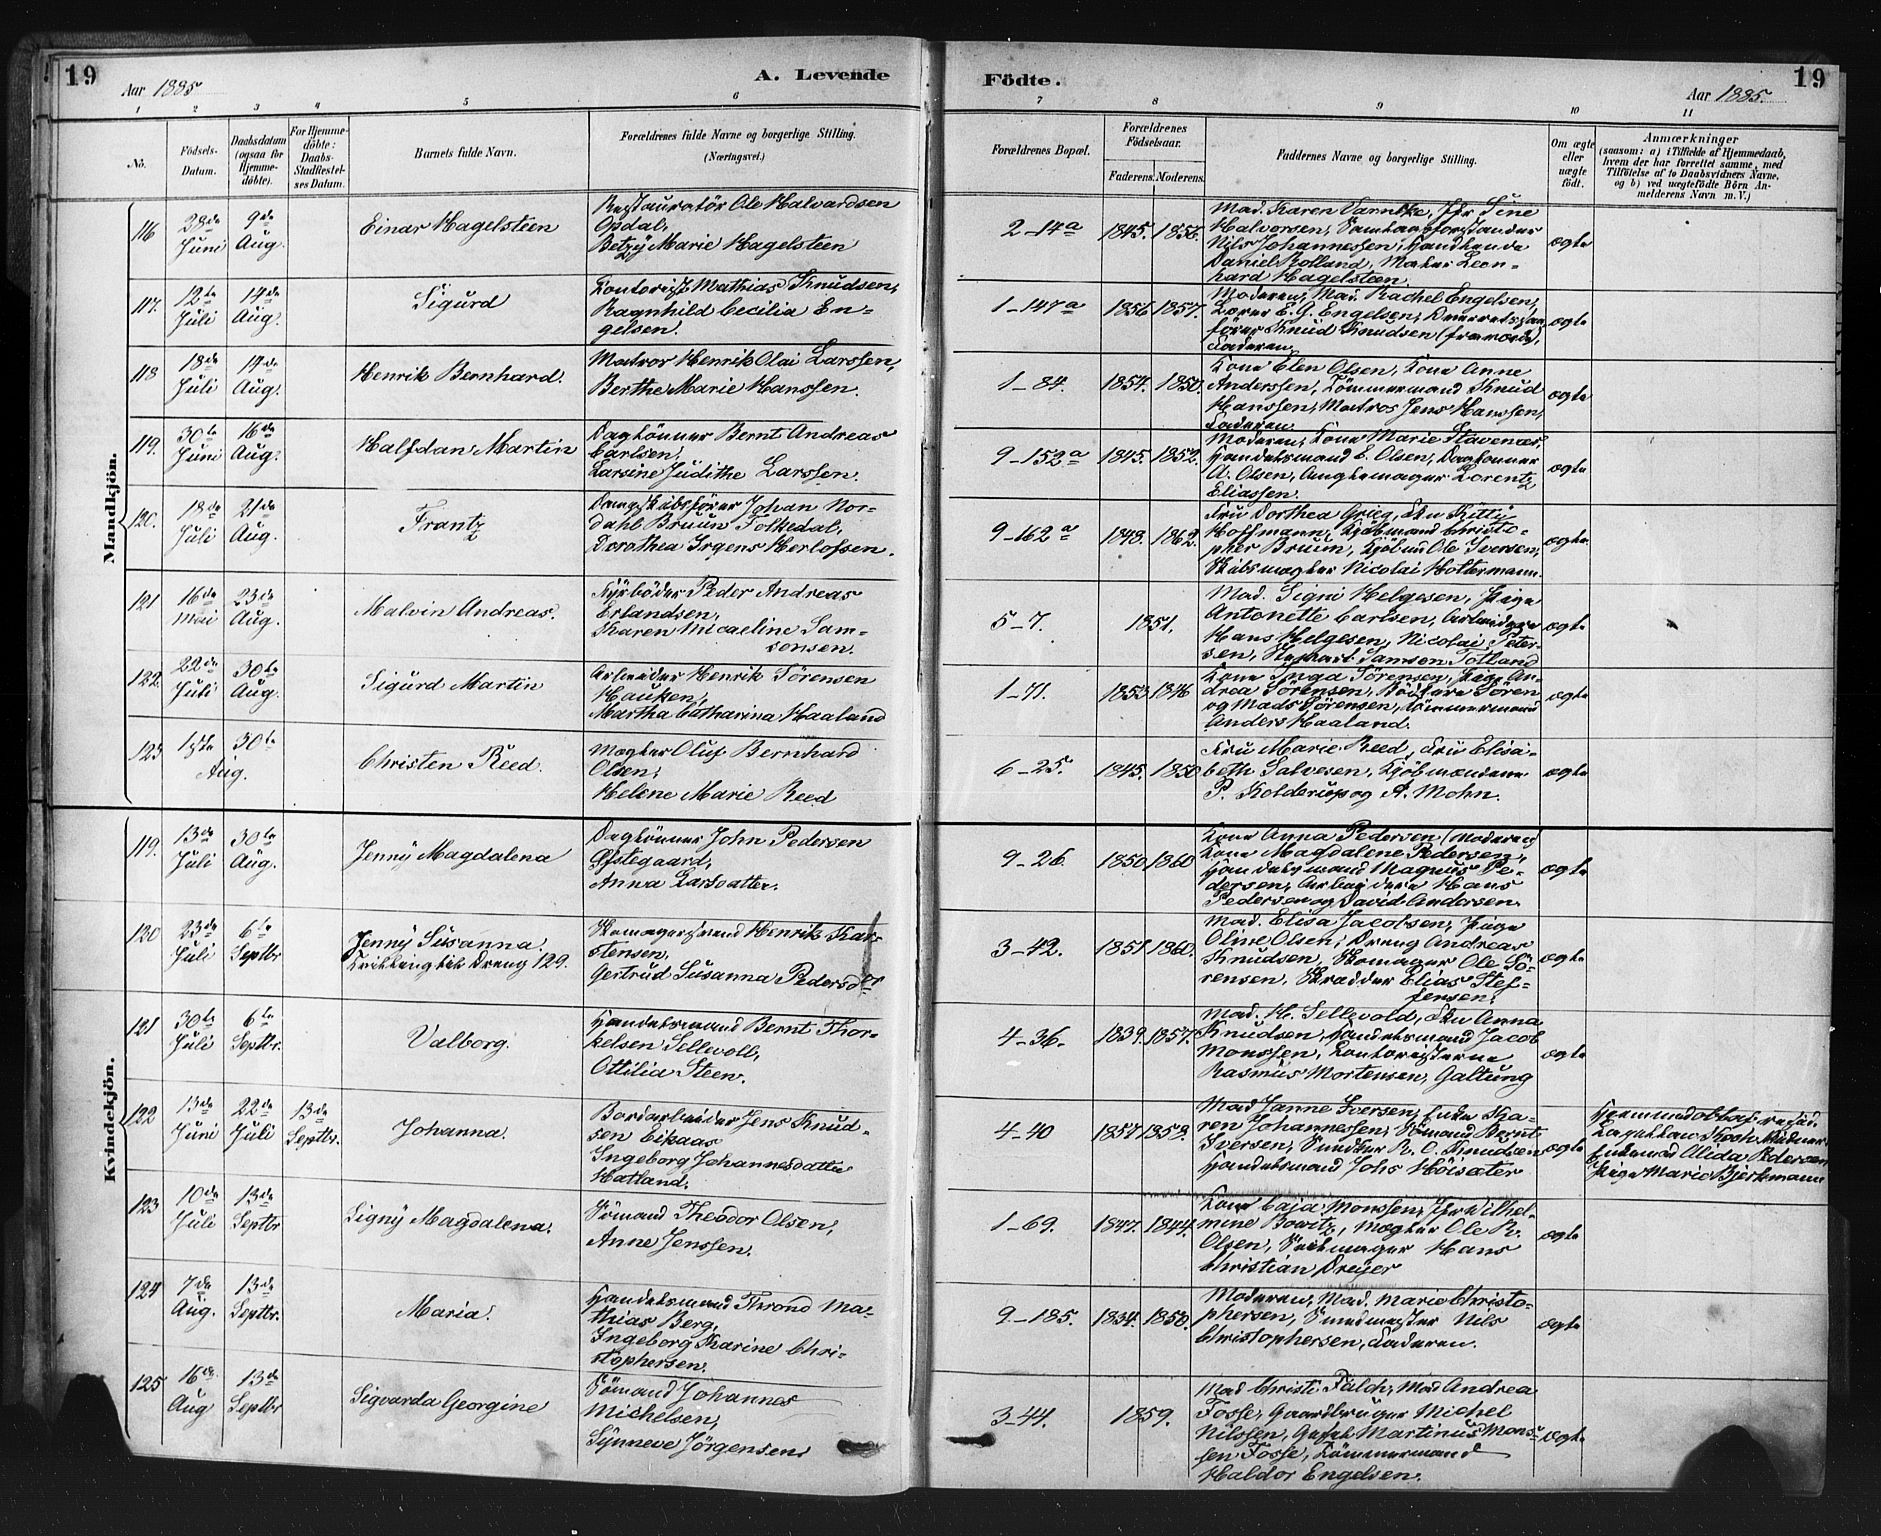 19
Aar 1885.
A. Levende
Födte.
Aar 1885.
19
1 2 3 4 5 6 7 8 9 10 11
No.
Födsels-
Datum.
Daabsdatum
(ogsaa for
Hjemme-
döbte).
For Hjemme-
döbte:
Daabs-
Stadfæstel-
ses Datum.
Barnets fulde Navn.
Forældrenes fulde Navne og borgerlige Stilling.
(Næringsvei.)
Forældrenes Bopæl.
Forældrenes
Födselsaar.
Faderens. Moderens.
Faddernes Navne og borgerlige Stilling.
Om ægte
eller
uægte
födt.
Anmærkninger
(saasom: a) i Tilfælde af Hjemmedaab,
hvem der har forrettet samme, med
Tilföielse af to Daabsvidners Navne,
og b) ved uægtefödte Börn An-
melderens Navn m. V.)
Mandkjön.
116 28de Juni 9de Aug.
Einar Hagelsteen
Restauratör Ole Halvardsen
Opdal,
Betzy Marie Hagelsteen
2-14a 1845. 1856.
Mad. Karen Vanneke, Jfr Sine
Halvorsen,
Nils Johannessen,
Daniel Rolland, Mægler Leon-
hard Hagelsteen
ægte
117. 12te Juli 14de Aug.
Sigurd
Kontorist Mathias Knudsen,
Ragnhild Cecilia En-
gelsen.
1-147a 1856 1857.
Moderen, Mad. Rachel Engelsen,
Lærer E. G. Engelsen,
förer Knud Knudsen
Faderen
ægte
118 18de Juli 14de Aug.
Henrik Bernhard.
Matros Henrik Olai Larssen,
Berthe Marie Hanssen.
1-84. 1854. 1850.
Kone Elen Olsen, Kone Anne
Anderssen, Tömmermand Knud
Hanssen, Matros Jens Hanssen,
Faderen
ægte
119. 30te Juni 16de Aug.
Halfdan Martin
Daglönner Bernt Andreas
Carlsen,
Larsine Judithe Larssen.
9-152a 1845. 1852.
Moderen, Kone Marie Stavenæs
Handelsmand E. Olsen, Daglönner
A. Olsen, Lorentz
Eliassen.
ægte
120. 18de Juli 21de Aug.
Frantz
Dampskibsförer Johan Nor-
dahl Bruun Folkedal,
Dorothea Irgens Herlofsen.
9-162a 1848. 1862.
Fru Dorthea Grieg, Fru Kitty
Hoffmann, Kjöbmand Christo-
pher Bruun, Kjöbmd Ole Iversen,
Skibsmægler Nicolai Holtermann.
ægte.
121 16de Mai 23de Aug.
Malvin Andreas.
Fyrböder Peder Andreas
Erlandsen,
Karen Micaeline Sam-
sonsen.
5-7. 1851.
Mad. Signi Helgesen, Pige
Antonette Carlsen, Arbeider
Hans Helgesen, Nicolai Peter-
sen, Samson Totland
ægte
122. 22de Juli 30te Aug.
Sigurd Martin
Arbeider Henrik Sörensen
Hauken,
Martha Catharina Haaland
1-71. 1853 1846
Kone Inga Sörensen, Pige An-
drea Sörensen, Bödkere Sören
og Mads Sörensen, Tömmermand
Anders Haaland.
ægte
123 1ste Aug. 30te
Christen Reed.
Mægler Oluf Bernhard
Olsen,
Helene Marie Reed
6-25. 1845. 1850
Fru Marie Reed, Fru Elisa-
beth Salvesen, Kjöbmændene
P. Kolderup og A. Mohn.
ægte
Kvindekjön.
119. 13de Juli 30te Aug.
Jenny Magdalena
Daglönner John Pedersen
Östegaard,
Anna Larsdatter.
9-26. 1850 1860
Kone Anna Pedersen (Moderen)
Kone Magdalene Pedersen,
Handelsmand Magnus Pe-
dersen, Arbeidere Hans
Pedersen og David Andersen.
ægte
120 23de Juli 6te Septbr
Jenny Susanna.
Tvilling til Dreng 129.
Skomagersvend Henrik Kars-
stensen,
Gertrud Susanna Pedersdtr
3-42. 1851 1860.
Mad. Elisa Jacobsen, Pige
Oline Olsen, Dreng Andreas
Knudsen, Skomager Ole Sö-
rensen, Skrædder Elias Stef-
fensen.
ægte
121 30te Juli 6te Septbr.
Valborg.
Handelsmand Bernt Thor-
kelsen Sellevoll,
Ottilia Steen.
4-36. 1839. 1857.
Mad. H. Sellevold, Fru Anna
Knudsen, Handelsmand Jacob
Monssen, Kontoristerne
Rasmus Mortensen, Galtung
ægte
122 13de Juni 22de Juli 13de Septbr.
Johanna.
Bordarbeider Jens Knud-
sen Eikaas
Ingeborg Johannesdatter
Hatland.
4-40 1857. 1858.
Mad Janne Iversen, Enke Ka-
ren Johannessen, Sömand Bernt
Iversen, R. C. Knudsen
Handelsmand Johs Höisæter
ægte
Hjemmedöbt af resid.
Kapellan Koch
Alida Pedersen
Pige Marie Bjerkmann
123 10de Juli 13de Septbr
Signy Magdalena.
Sömand Theodor Olsen,
Anne Jenssen.
1-69. 1847. 1844.
Kone Caja Monssen, Jfr Wilhel-
mine Bowitz, Mægler Ole R.
Olsen, Seilmager Hans
Christian Dreyer
ægte
124 7de Aug. 13de Septbr.
Maria.
Handelsmand Thrond Ma-
thias Berg,
Ingeborg Karine Chri-
stophersen.
9-185. 1834. 1850.
Moderen, Mad. Marie Christo-
phersen, Smedmester Nils
Christophersen, Faderen.
ægte
125 16de Aug 13de Septbr
Sigvarda Georgine
Sömand Johannes
Michelsen,
Synneve Jörgensen
3-44. 1859.
Mad Christi Falch, Mad Andrea
Fosse, Gaardbruger Michel
Nilssen, Martinus Mons-
sen Fosse, Tömmermand
Haldor Engelsen.
ægte